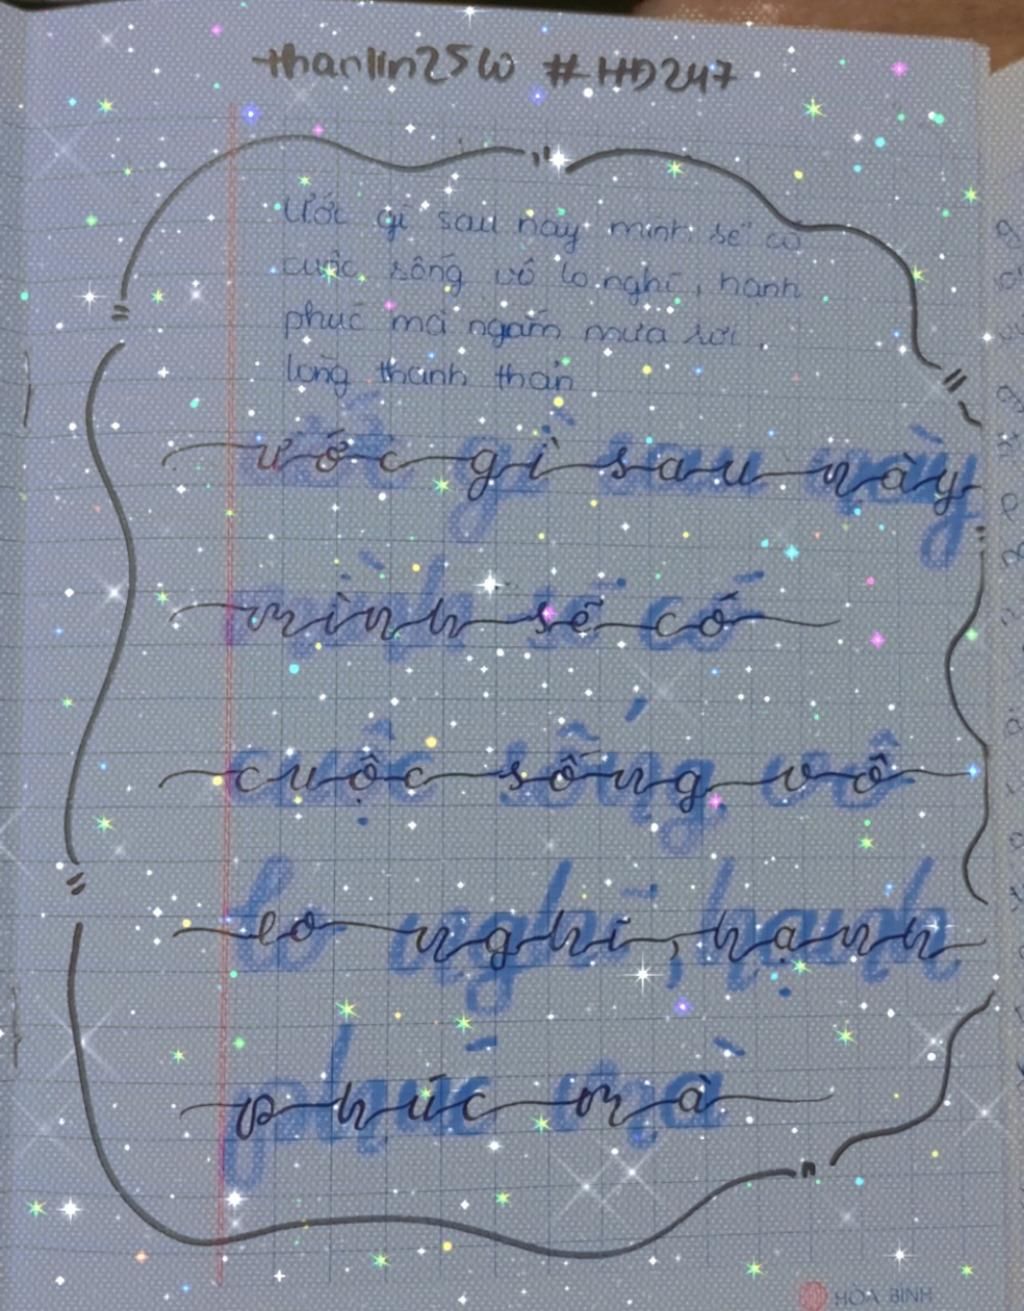 thanlin25w #HD247
Ước gì sau này mình sẽ có
cuộc sống vô lo nghĩ, hạnh
phúc mà ngắm mưa rơi,
lòng thanh thản
ước gì sau này
mình sẽ có
cuộc sống vô
lo nghĩ, hạnh
phúc mà
HÒA BÌNH